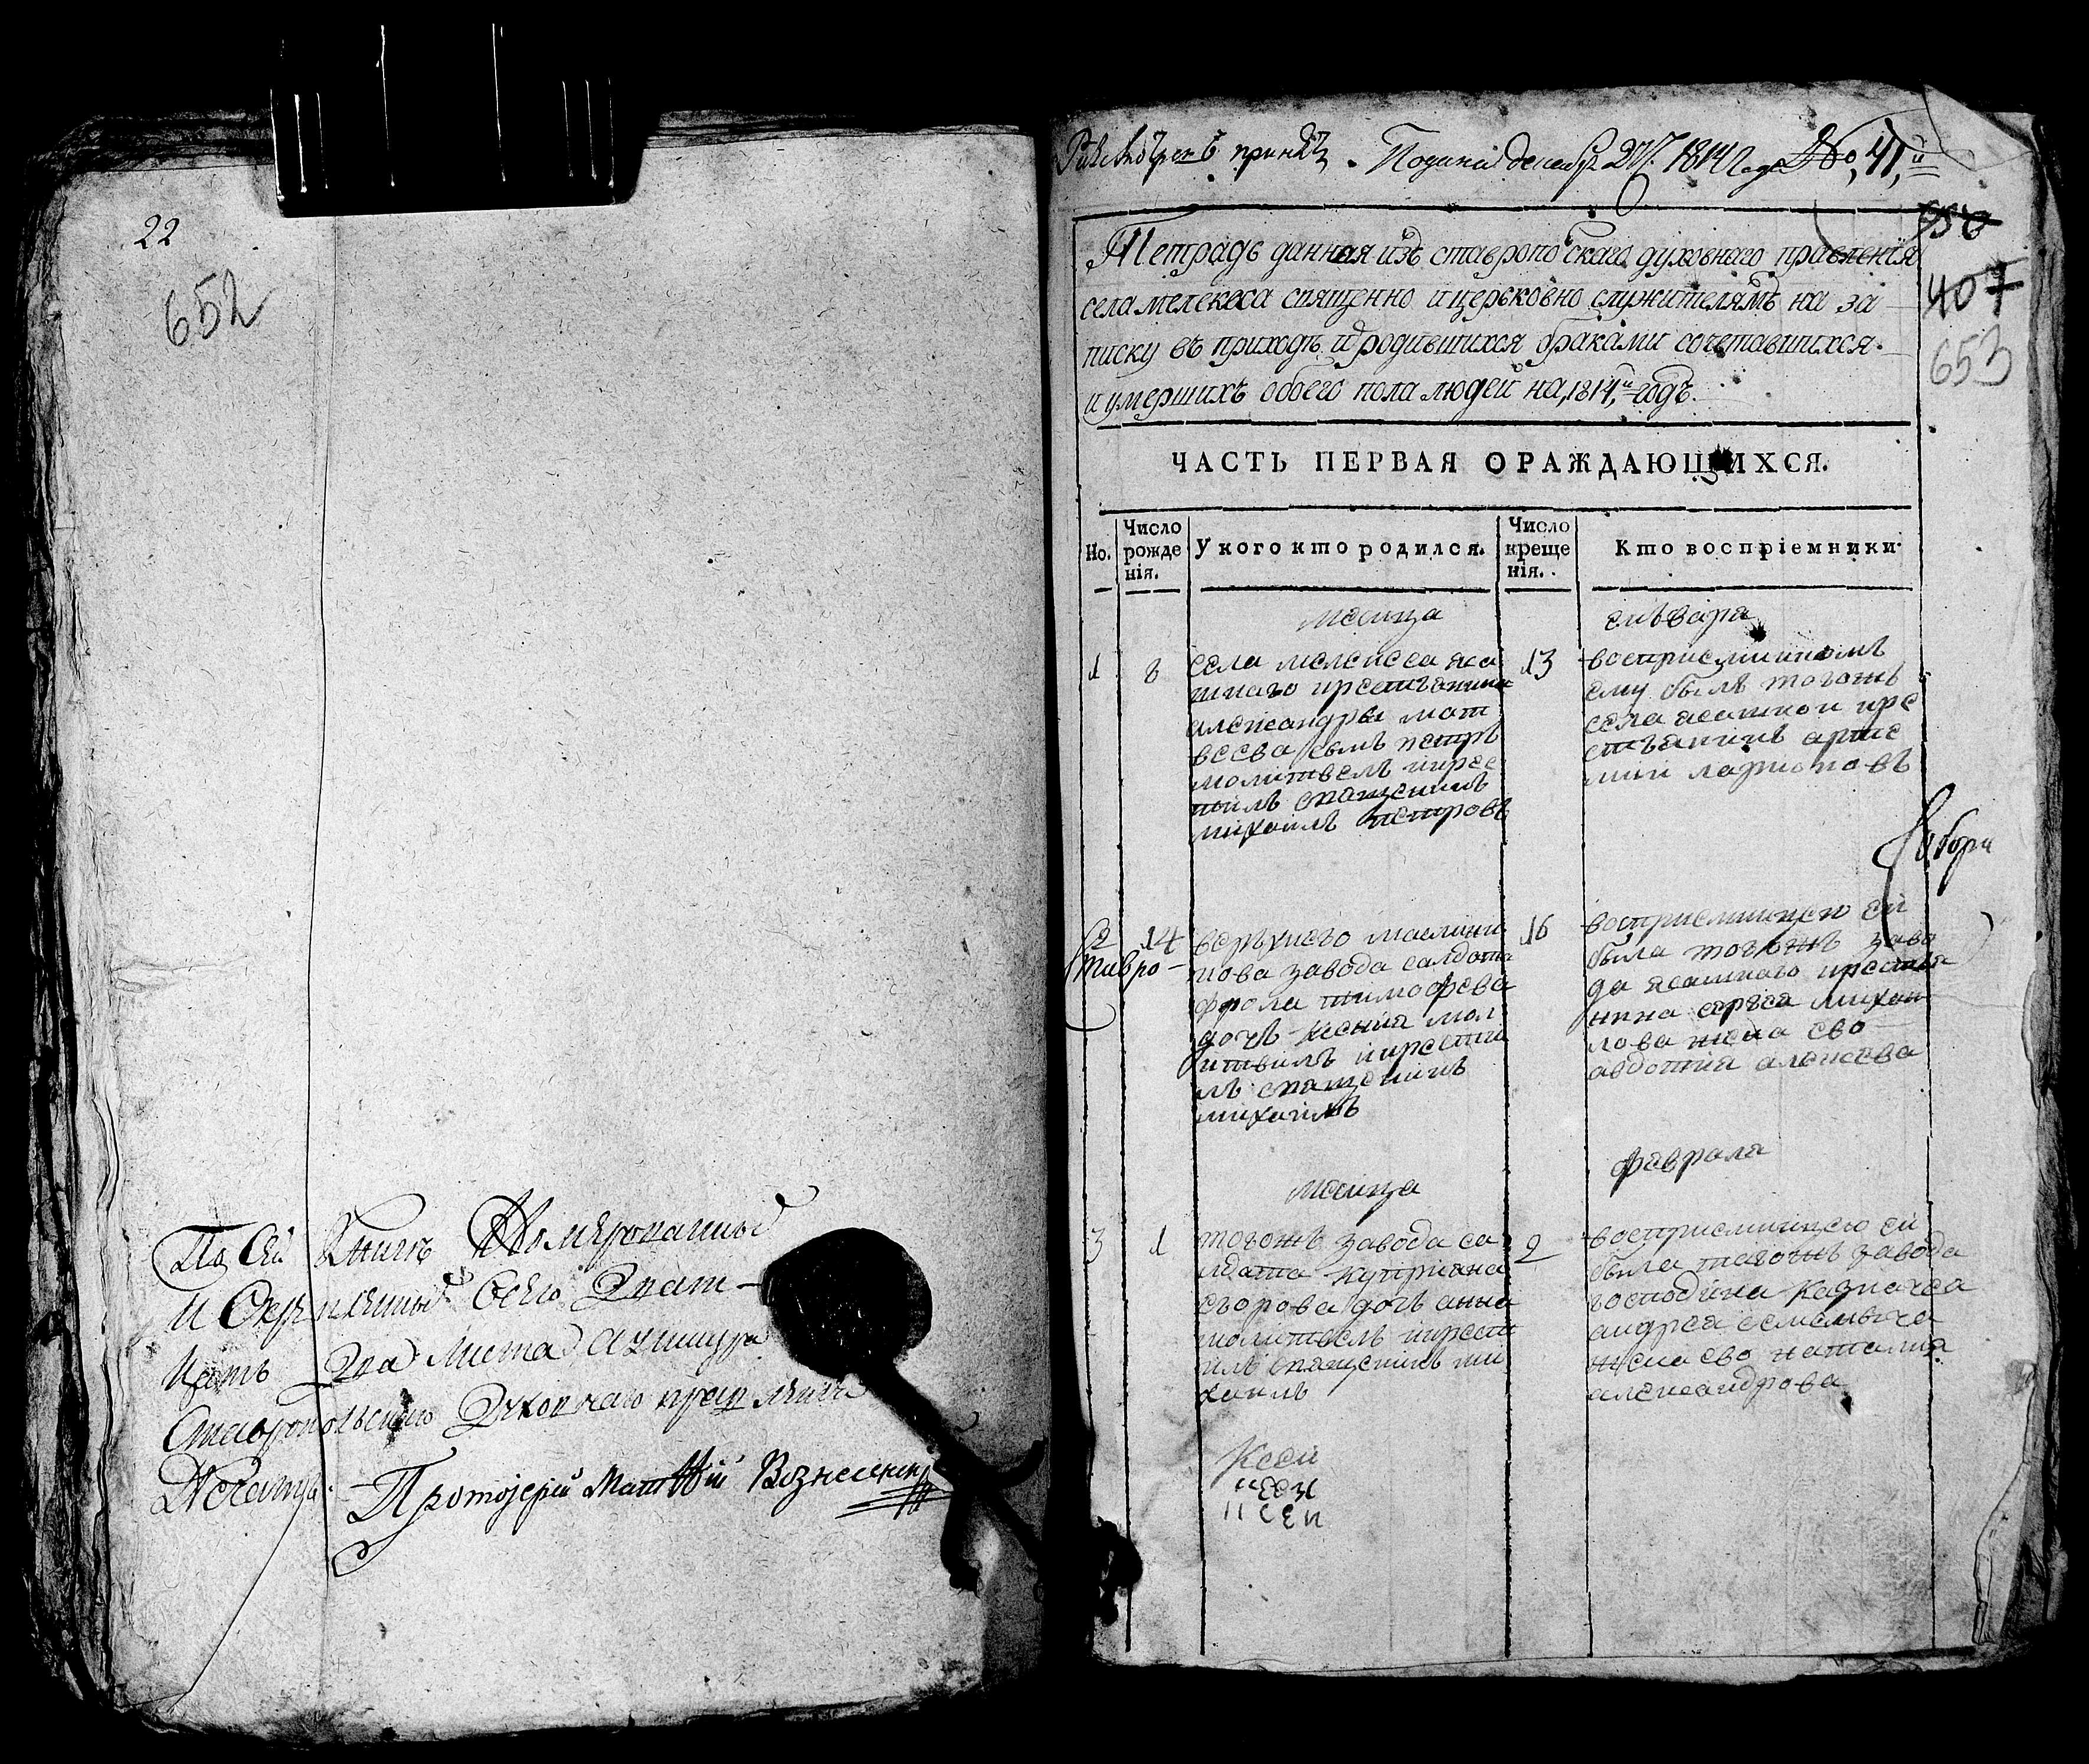 22
652
По Сей Книге Номерованныхъ
и Скрепленныхъ Всего Дват-
цать Два листа а у шнура
Ставропольского Духовнаго правления
Печать.
Протоіерей Матвѣй Вознесенск
принята. Подана декабр 27 1814 Года No, 41,й
Тетрадь данная изъ ставропольскаго духовнаго правленія
села мелекеса священно и церьковно служителямъ на за
писку въ приходѣ и родившихся браками сочетавшихся.
и умершихъ обоего пола людей на, 1814,й годъ.
407
653
ЧАСТЬ ПЕРВАЯ О РАЖДАЮЩИХСЯ.
Но.
Число рожде нія.
У кого кто родился.
Число креще нія.
Кто воспріемники.
месица
енъваря
1
8
села мелекеса яса
шнаго крестьянина
александры мат
веева сынъ петръ
молитвелъ икрес
тилъ священникъ
михаилъ петровъ
13
восприемникомъ
ему былъ тогожъ
села ясашной кре
стьянинъ арте
мий ларионовъ
2
14
Ставро-
верхнего мелеке
сова завода салдата
фрола тимофева
дочь ксения мол
итвилъ икрести
лъ священикъ
михаилъ
16
восприемницею ей
была тогожъ заво
да ясашнаго крестья
нина сергея михаи
лова жена ево
авдотия алексева
месица
февраля
3
1
тогожъ завода са
лдата куприяна
егорова дочь анна
молителъ икрести
лъ священикъ ми
хаилъ
2
восприемницею ей
была тогожъ завода
господина казначея
андрея семеныча
жена ево наталия
александрова